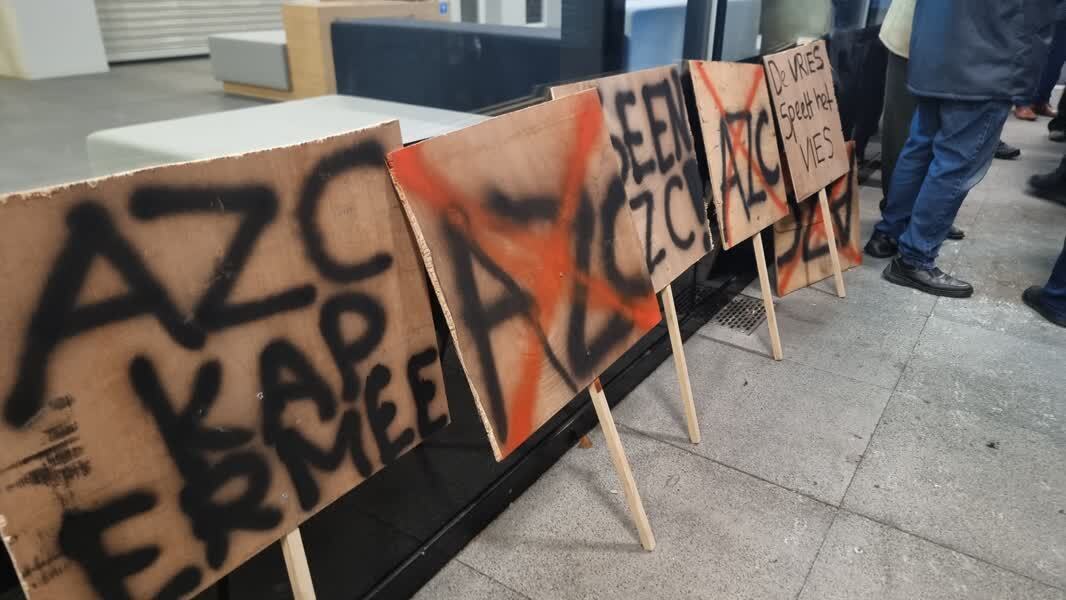 AZC
KAP
ERMEE
AZC
GEEN
ZC
AZC
De VRIES
Speelt het
VIES